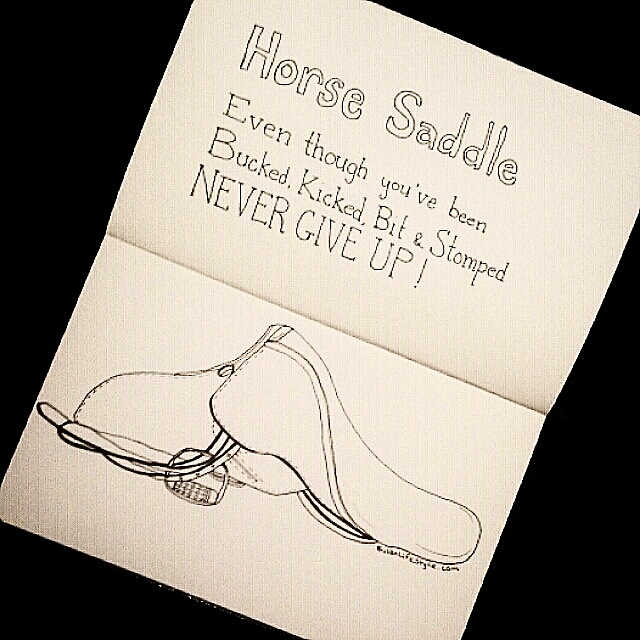 Horse Saddle
Even though you've been
Bucked, Kicked, Bit & Stomped
NEVER GIVE UP!